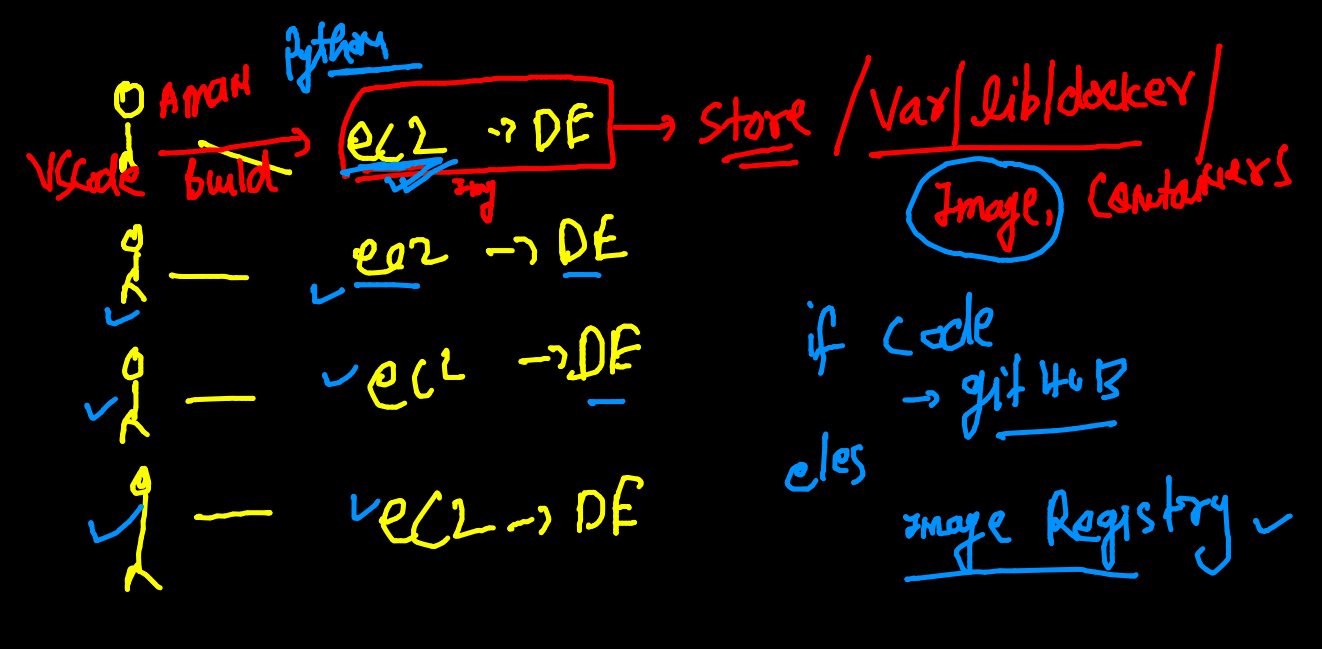 Python
AMAN
VSCode build ec2 → DE → Store /var/lib/docker/
Img Image, Containers
ec2 → DE
if code
ec2 → DE
→ gitHUB
eles
ec2 → DE
Image Registry